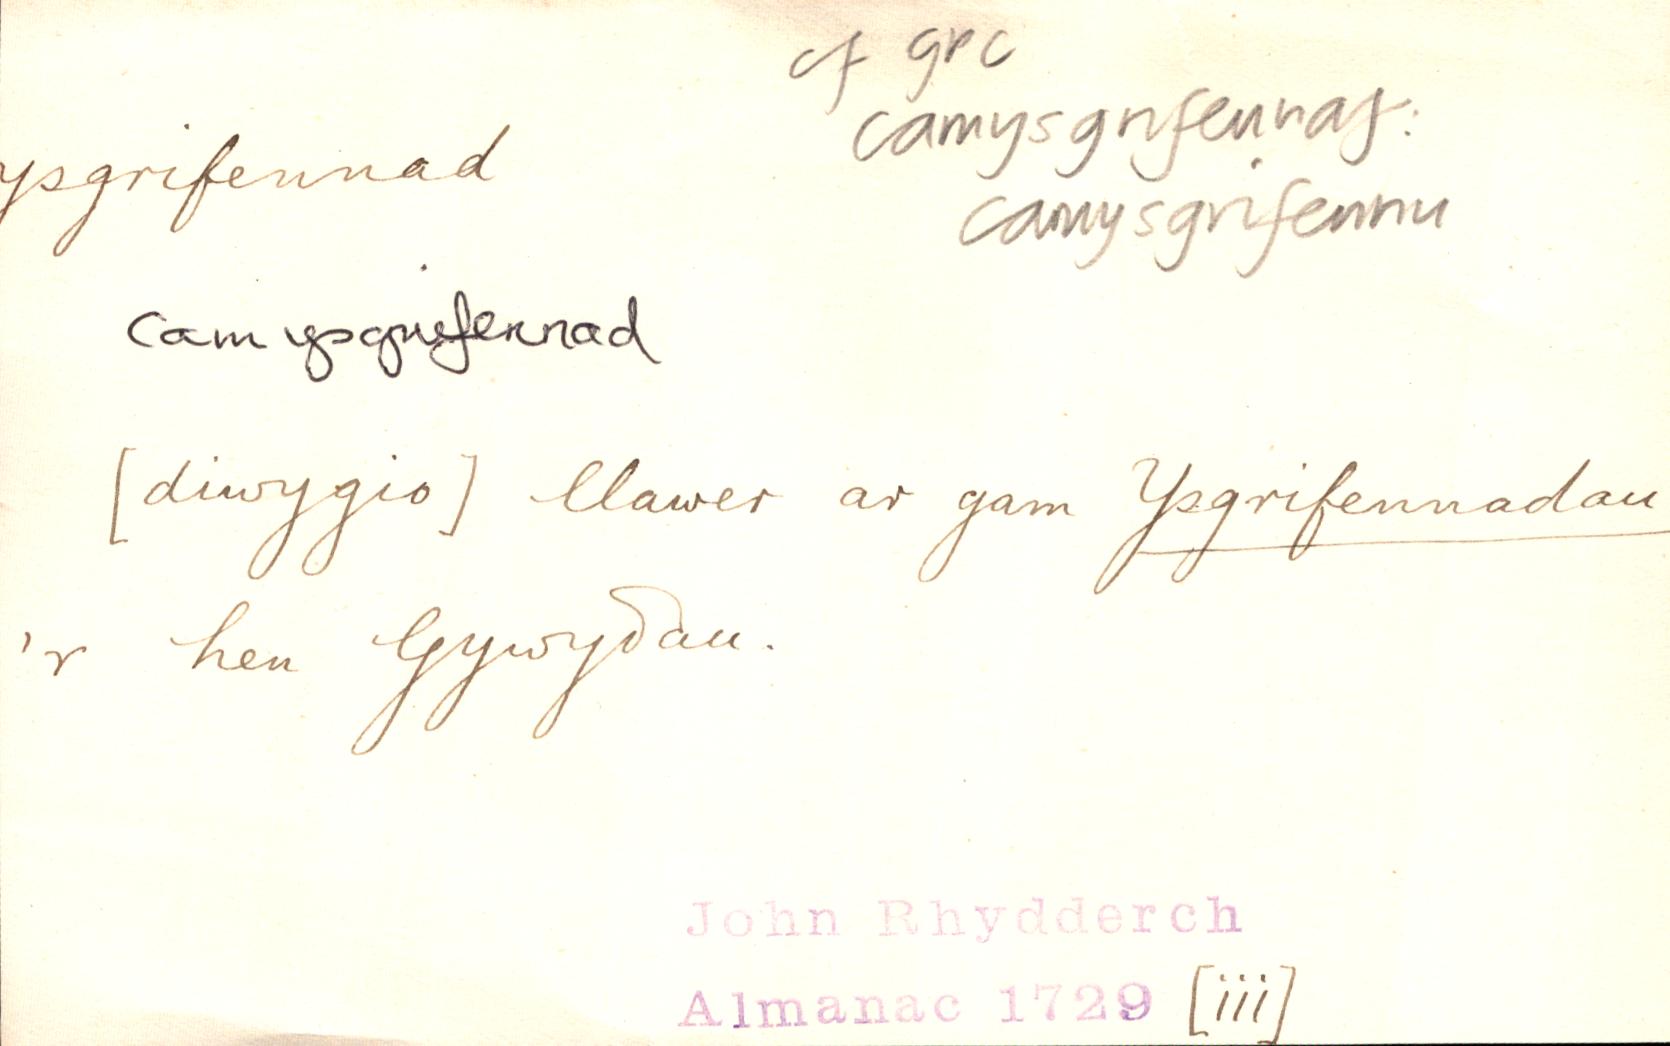 cf GPC
camysgrifennaf:
camysgrifennu
ysgrifennad
camysgrifennad
[diwygio] llawer ar gam Ysgrifennadau
'r hen Gywyδau.
John Rhydderch
Almanac 1729 [iii]